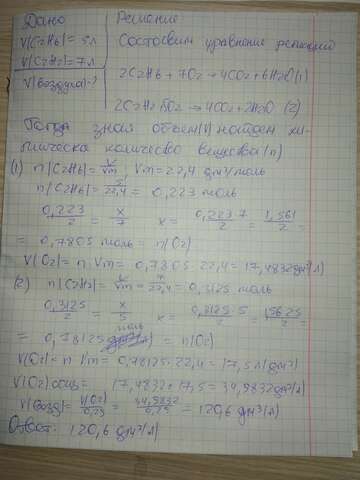 Дано
Решение
V(C2H6) = 5л
Составим уравнение реакций
V(C2H2) = 7л
V(воздуха)-?
2C2H6 + 7O2 → 4CO2 + 6H2O (1)
2C2H2 + 5O2 → 4CO2 + 2H2O (2)
Тогда зная объем(V) найдем хи-
мическое количество вещества (n)
(1) n(C2H6) = V/Vm; Vm = 22,4 дм³/моль
n(C2H6) = 5/22,4 = 0,223 моль
0,223/2 = x/7 x = 0,223·7/2 = 1,561/2 =
= 0,7805 моль = n(O2)
V(O2) = n·Vm = 0,7805·22,4 = 17,4832 дм³(л)
(2) n(C2H2) = V/Vm = 7/22,4 = 0,3125 моль
0,3125/2 = x/5 x = 0,3125·5/2 = 1,5625/2 =
= 0,78125 моль = n(O2)
V(O2) = n·Vm = 0,78125·22,4 = 17,5 л(дм³)
V(O2) общ = 17,4832 + 17,5 = 34,9832 дм³(л)
V(возд) = V(O2)/0,29 = 34,9832/0,29 = 120,6 дм³(л)
Ответ: 120,6 дм³(л)